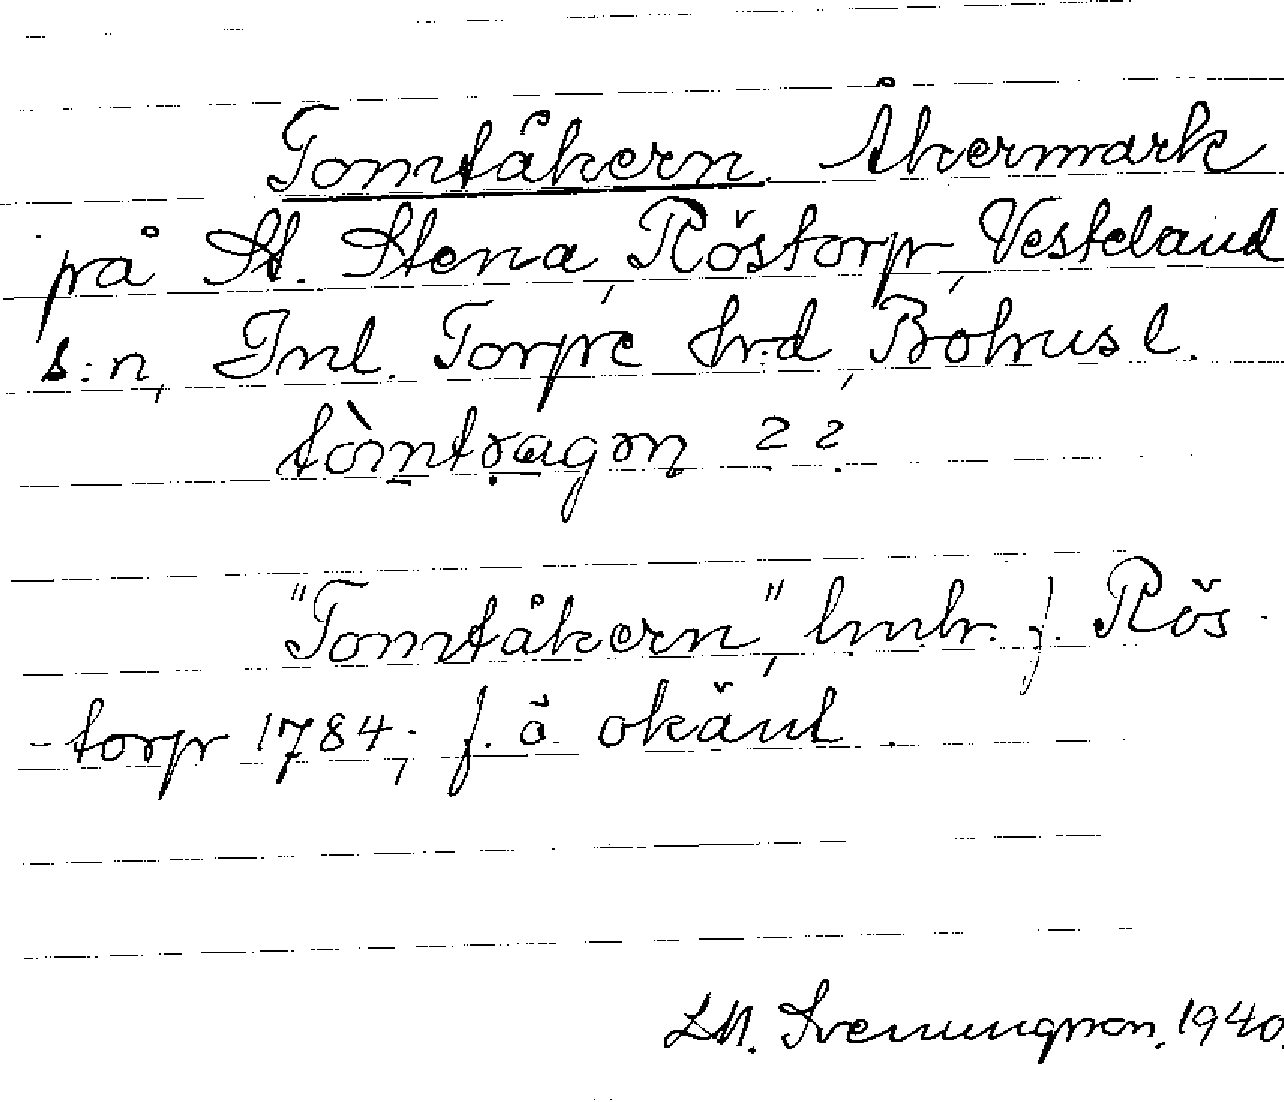 Tomtåkern. Åkermark
på St. Stena, Röstorp, Vesteland
s:n, Inl. Torpe hrd, Bohusl.
tòmtragɷn 22.
"Tomtåkern", lmhr. f. Rös-
-torp 1784; f. ö okänt.
LM. Svenungsson. 1940.